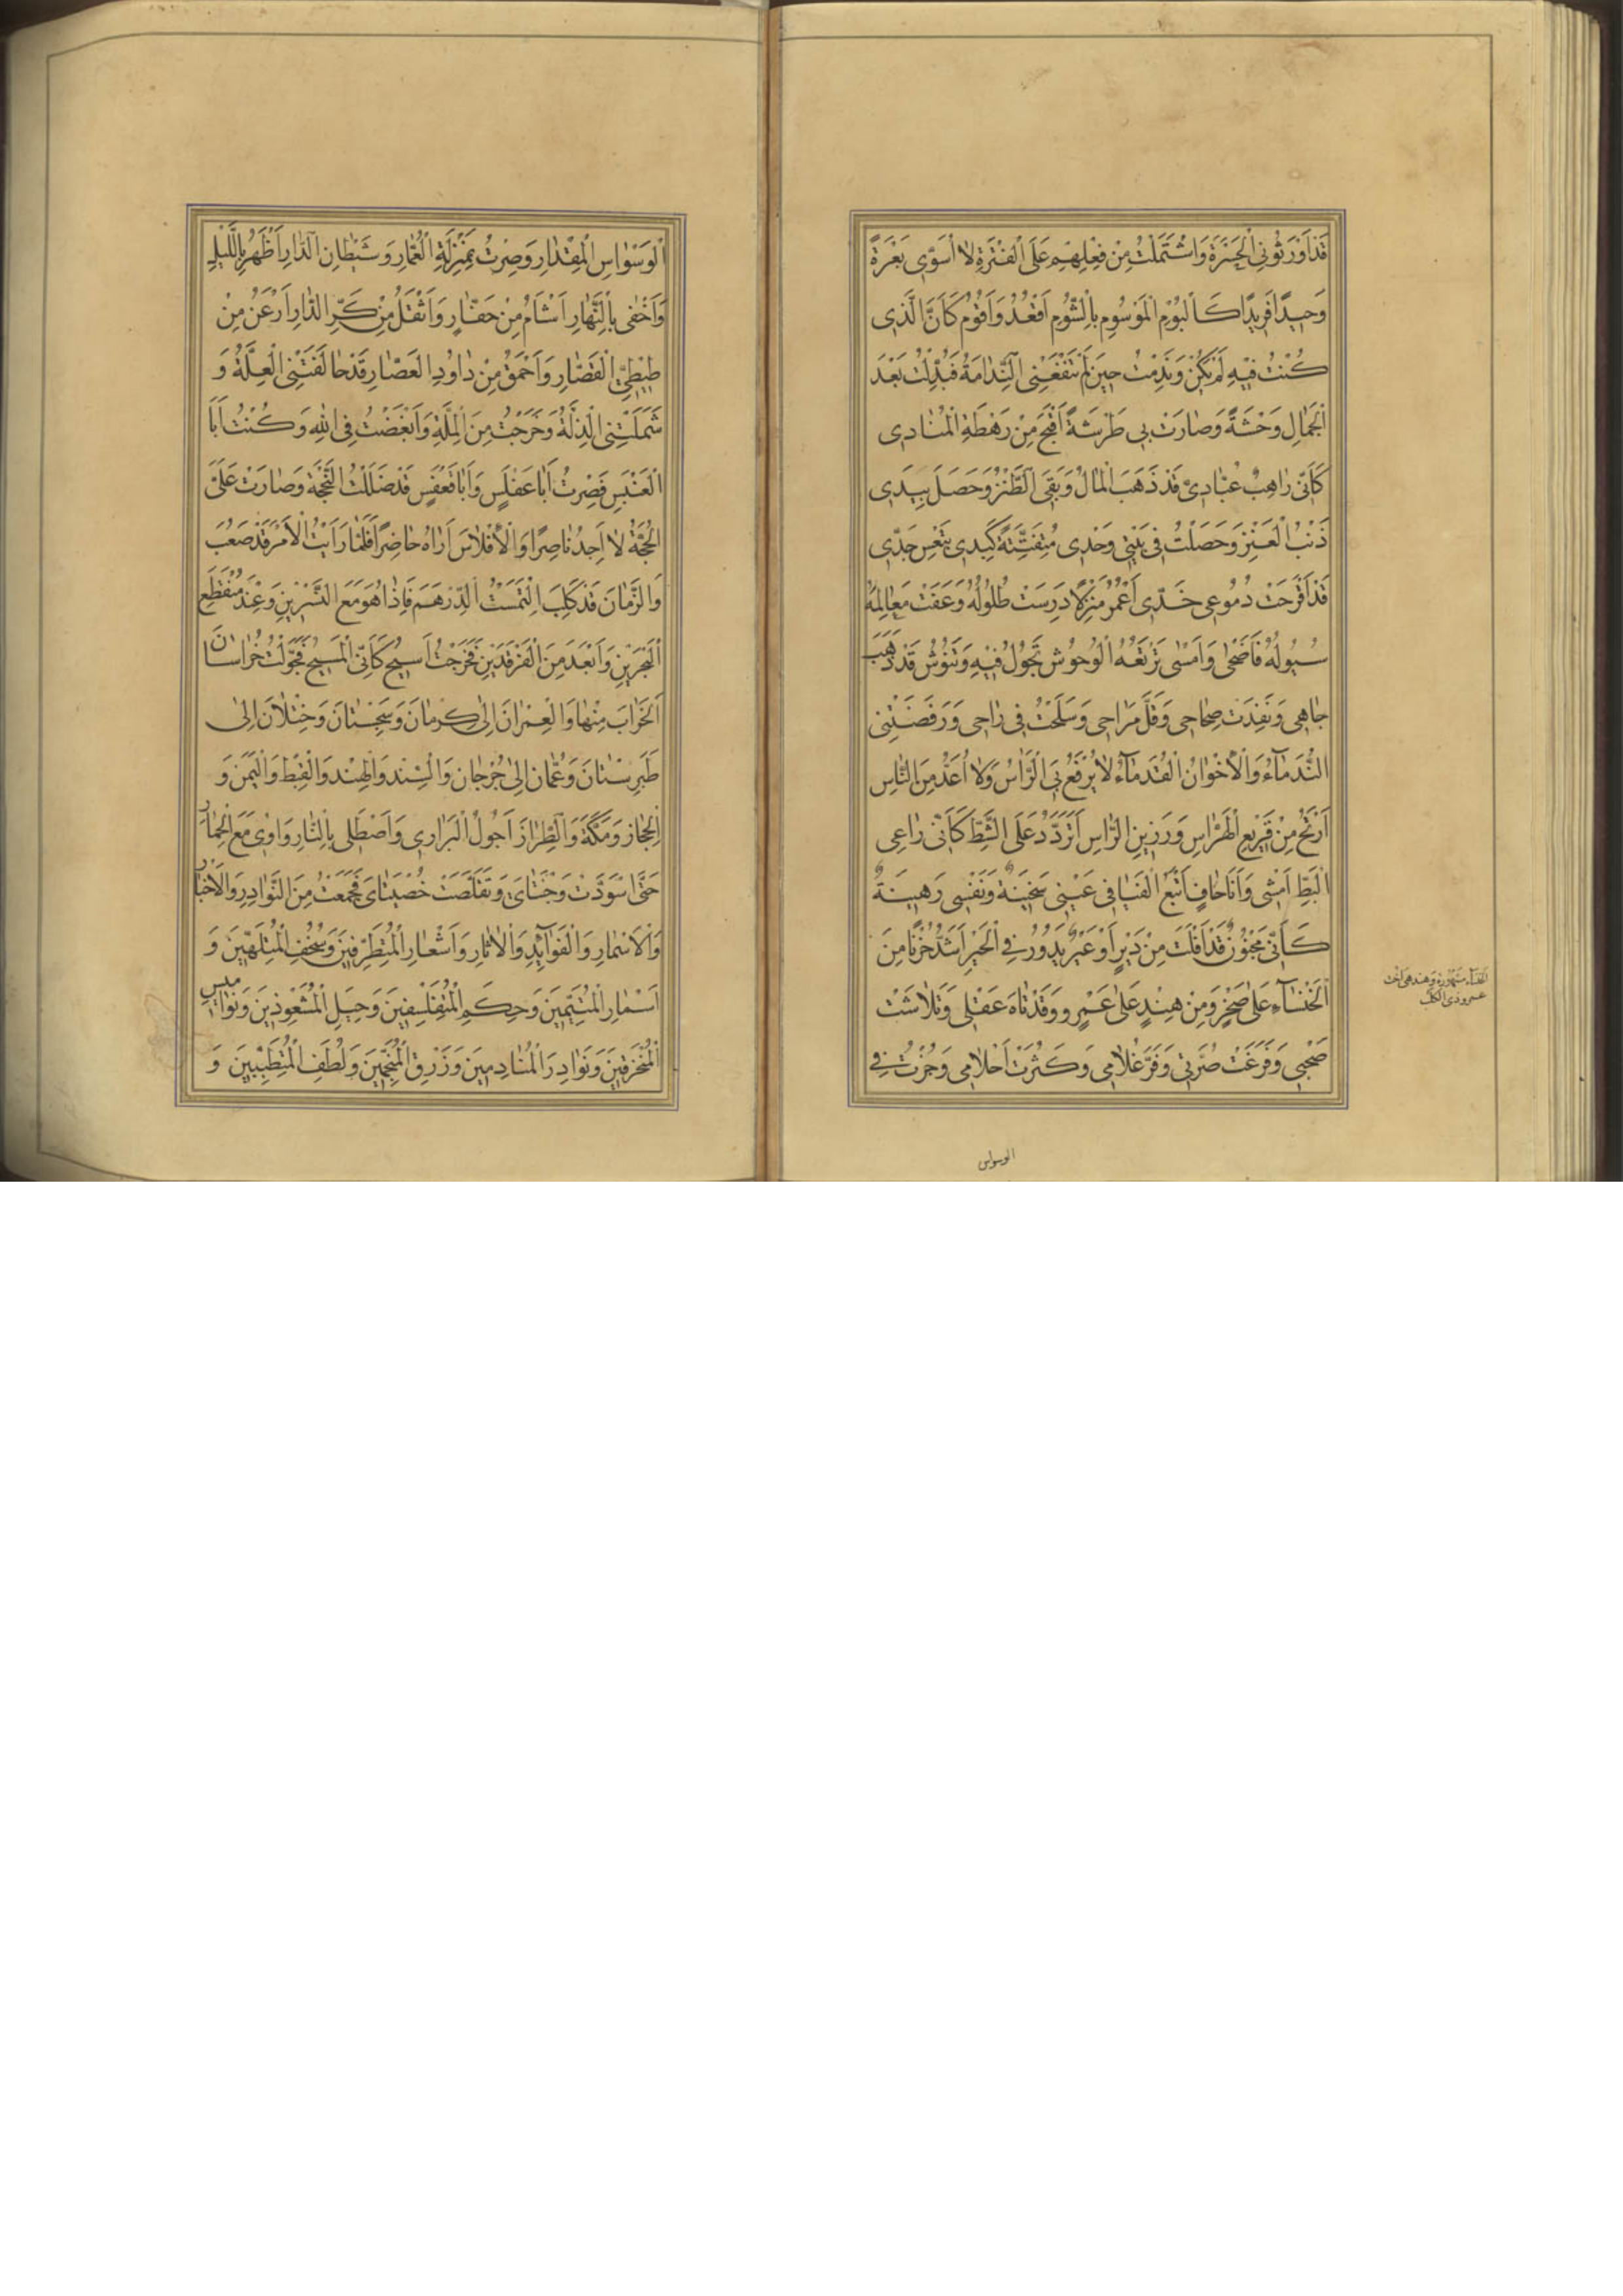 قَدْ اَوْرَثُونِي الْحَسْرَةَ وَاشْتَمَلْتُ مِنْ فِعْلِهِمْ عَلَى الْفَتْرَةِ لَا اُسَوّٰى بَعْرَةً
وَحِيدًا فَرِيدًا كَالْبُومِ الْمَوْسُومِ بِالشُّومِ اَقْعُدُ وَاَقُومُ كَاَنَّ الَّذِى
كُنْتُ فِيهِ لَمْ يَكُنْ وَنَدِمْتُ حِينَ لَمْ تَنْفَعْنِى النَّدَامَةُ فَبُدِّلْتُ بَعْدَ
الْجَمَالِ وَحْشَةً وَصَارَتْ بِى طَرْشَةٌ اَقْبَحَ مِنْ رَهْطَةِ الْمُنَادِى
كَاَنِّى رَاهِبٌ عَبَّادِىٌّ قَدْ ذَهَبَ الْمَالُ وَبَقِىَ الطَّنْزُ وَحَصَلَ بِيَدِى
ذَنْبُ الْعَنْزِ وَحَصَلْتُ فِى بَيْتِى وَحْدِى مُتَفَتِّتَةً كَبِدِى بِتَعْسِ جَدِّى
قَدْ اَقْرَحَتْ دُمُوعِى خَدِّى اَعْمُرُ مَنْزِلًا دَرَسَتْ طُلُولُهُ وَعَفَتْ مَعَالِمَهُ
سُيُولُهُ فَاَضْحٰى وَاَمْسٰى تَرْتَعُهُ الْوُحُوشُ تَجُولُ فِيهِ وَتَنُوشُ قَدْ ذَهَبَ
جَاهِى وَنَفِدَتْ صِحَاحِى وَقَلَّ مَرَاحِى وَسَلَحْتُ فِى رَاحِى وَرَفَضَتْنِى
النُّدَمَآءُ وَالْاِخْوَانُ الْقُدَمَآءُ لَا يُرْفَعُ بِىَ الرَّاْسُ وَلَا اُعَدُّ مِنَ النَّاسِ
اَوْتَحُ مِنْ قَرِيعِ الْهَرَّاسِ وَرَزِينِ الرَّاسِ اَتَرَدَّدُ عَلَى الشَّطِّ كَاَنِّى رَاعِى
الْبَطِّ اَمْشِى وَاَنَا حَافٍ اَتْبَعُ الْفَيَافِى عَيْنِى سَخِينَةٌ وَنَفْسِى رَهِينَةٌ
كَاَنِّى مَجْنُونٌ قَدْ اَفْلَتَ مِنْ دَيْرٍ اَوْ عَيْرٌ يَدُورُ فِى الْحَيْرِ اَشَدُّ حُزْنًا مِنَ
الْخَنْسَآءِ عَلٰى صَخْرٍ وَمِنْ هِنْدٍ عَلٰى عَمْرٍو وَقَدْ تَاهَ عَقْلِى وَتَلَاشَتْ
صَحْبِى وَفَرَغَتْ صُرَّتِى وَفَرَّ غُلَامِى وَكَثُرَتْ اَحْلَامِى وَجُزْتُ فِى
الخنساء مشهورة وهند هى اخت
عمرو ذى الكلب
الوسواس
الْوَسْوَاسِ الْمِقْدَارَ وَصِرْتُ بِمَنْزِلَةِ الْعُمَّارِ وَشَيْطَانِ الدَّارِ اَظْهَرُ بِاللَّيْلِ
وَاَخْفٰى بِالنَّهَارِ اَشْاَمُ مِنْ حَفَّارٍ وَاَثْقَلُ مِنْ كَرِى الدَّارِ اَرْعَنُ مِنْ
طَيْطِىِّ الْقَصَّارِ وَاَحْمَقُ مِنْ دَاوُدِ الْعَصَّارِ قَدْ حَالَفَتْنِى الْعِلَّةُ وَ
شَمَلَتْنِى الذِّلَّةُ وَخَرَجْتُ مِنَ الْمِلَّةِ وَاَبْغَضْتُ فِى اللهِ وَكُنْتُ اَبَا
الْعَنْبَسِ فَصِرْتُ اَبَا عَفَلَّسٍ وَاَبَا قَعْفَسٍ قَدْ ضَلَلْتُ الْمَحَجَّةَ وَصَارَتْ عَلَىَّ
الْحُجَّةُ لَا اَجِدُ نَاصِرًا وَالْاِفْلَاسَ اَرَاهُ حَاضِرًا فَلَمَّا رَاَيْتُ الْاَمْرَ قَدْ صَعُبَ
وَالزَّمَانَ قَدْ كَلِبَ الْتَمَسْتُ الدِّرْهَمَ فَاِذَا هُوَ مَعَ النَّسْرَيْنِ وَعِنْدَ مُنْقَطَعِ
الْبَحْرَيْنِ وَاَبْعَدَ مِنَ الْفَرْقَدَيْنِ فَخَرَجْتُ اَسِيحُ كَاَنِّى الْمَسِيحُ فَجَوَّلْتُ خُرَاسَانَ
الْخَرَابَ مِنْهَا وَالْعِمْرَانَ اِلٰى كِرْمَانَ وَسِجِسْتَانَ وَخِتْلَانَ اِلٰى
طَبَرِسْتَانَ وَعُمَانَ اِلٰى جُرْجَانَ وَالسِّنْدِ وَالْهِنْدِ وَالْقِبْطِ وَالْيَمَنِ وَ
الْحِجَازِ وَمَكَّةَ وَالطِّرَازَ اَجُولُ الْبَرَارِى وَاَصْطَلِى بِالنَّارِ وَاٰوِى مَعَ الْحِمَارِ
حَتَّى اسْوَدَّتْ وَجْنَتَاىَ وَتَقَلَّصَتْ خُصْيَتَاىَ فَجَمَعْتُ مِنَ النَّوَادِرِ وَالْاَخْبَارِ
وَالْاَسْمَارِ وَالْفَوَآئِدِ وَالْاٰثَارِ وَاَشْعَارِ الْمُتَظَرِّفِينَ وَسُخْفِ الْمُتَلَهِّينَ وَ
اَسْمَارِ الْمُتَيَّمِينَ وَحِكَمِ الْمُتَفَلْسِفِينَ وَحِيَلِ الْمُشَعْوِذِينَ وَنَوَامِيسِ
الْمُتَمَخْرِقِينَ وَنَوَادِرَ الْمُنَادِمِينَ وَزَرْقِ الْمُنَجِّمِينَ وَلُطْفِ الْمُتَطَبِّبِينَ وَ